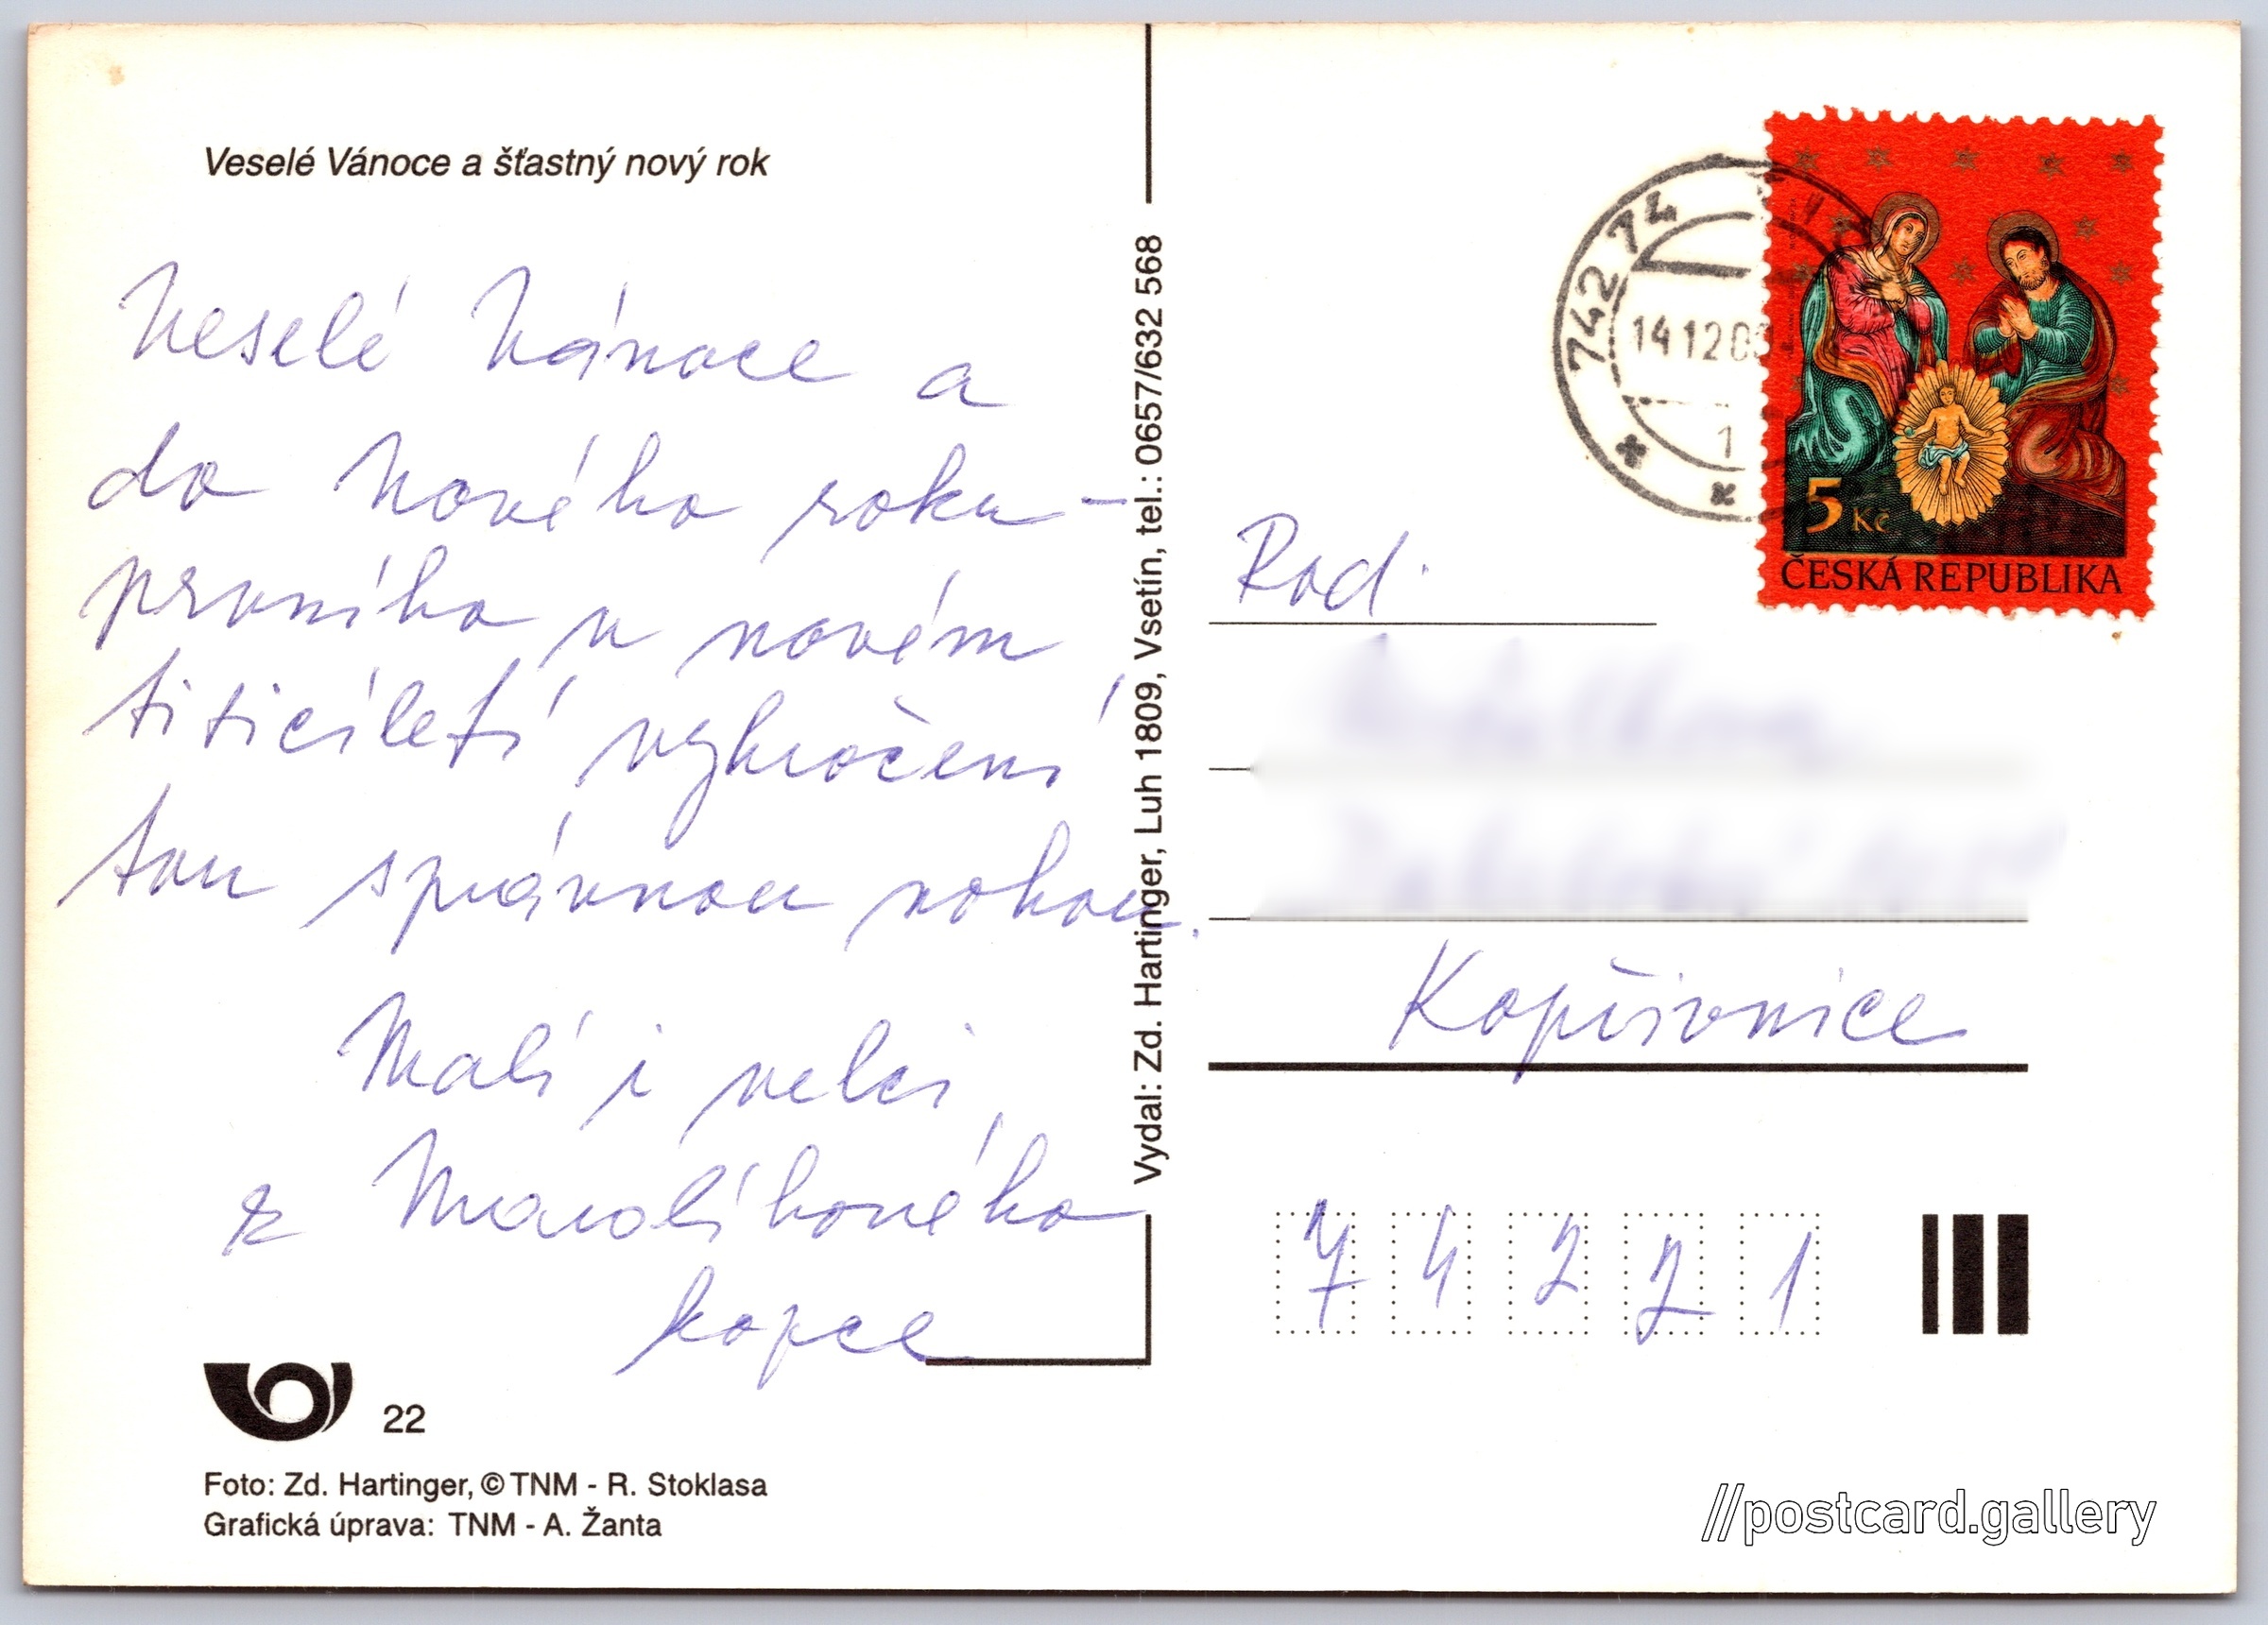 Veselé Vánoce a šťastný nový rok
Veselé Vánoce a
do Nového roku –
prvního v novém
titicíletí vykročení
tou správnou nohou.
Malí i velcí
z
kopce
22
Foto: Zd. Hartinger, © TNM - R. Stoklasa
Grafická úprava: TNM - A. Žanta
Vydal: Zd. Hartinger, Luh 1809, Vsetín, tel.: 0657/632 568
742 74
14 12 00
1
5 Kč
ČESKÁ REPUBLIKA
Rod.
Kopřivnice
7 4 2 2 1
//postcard.gallery